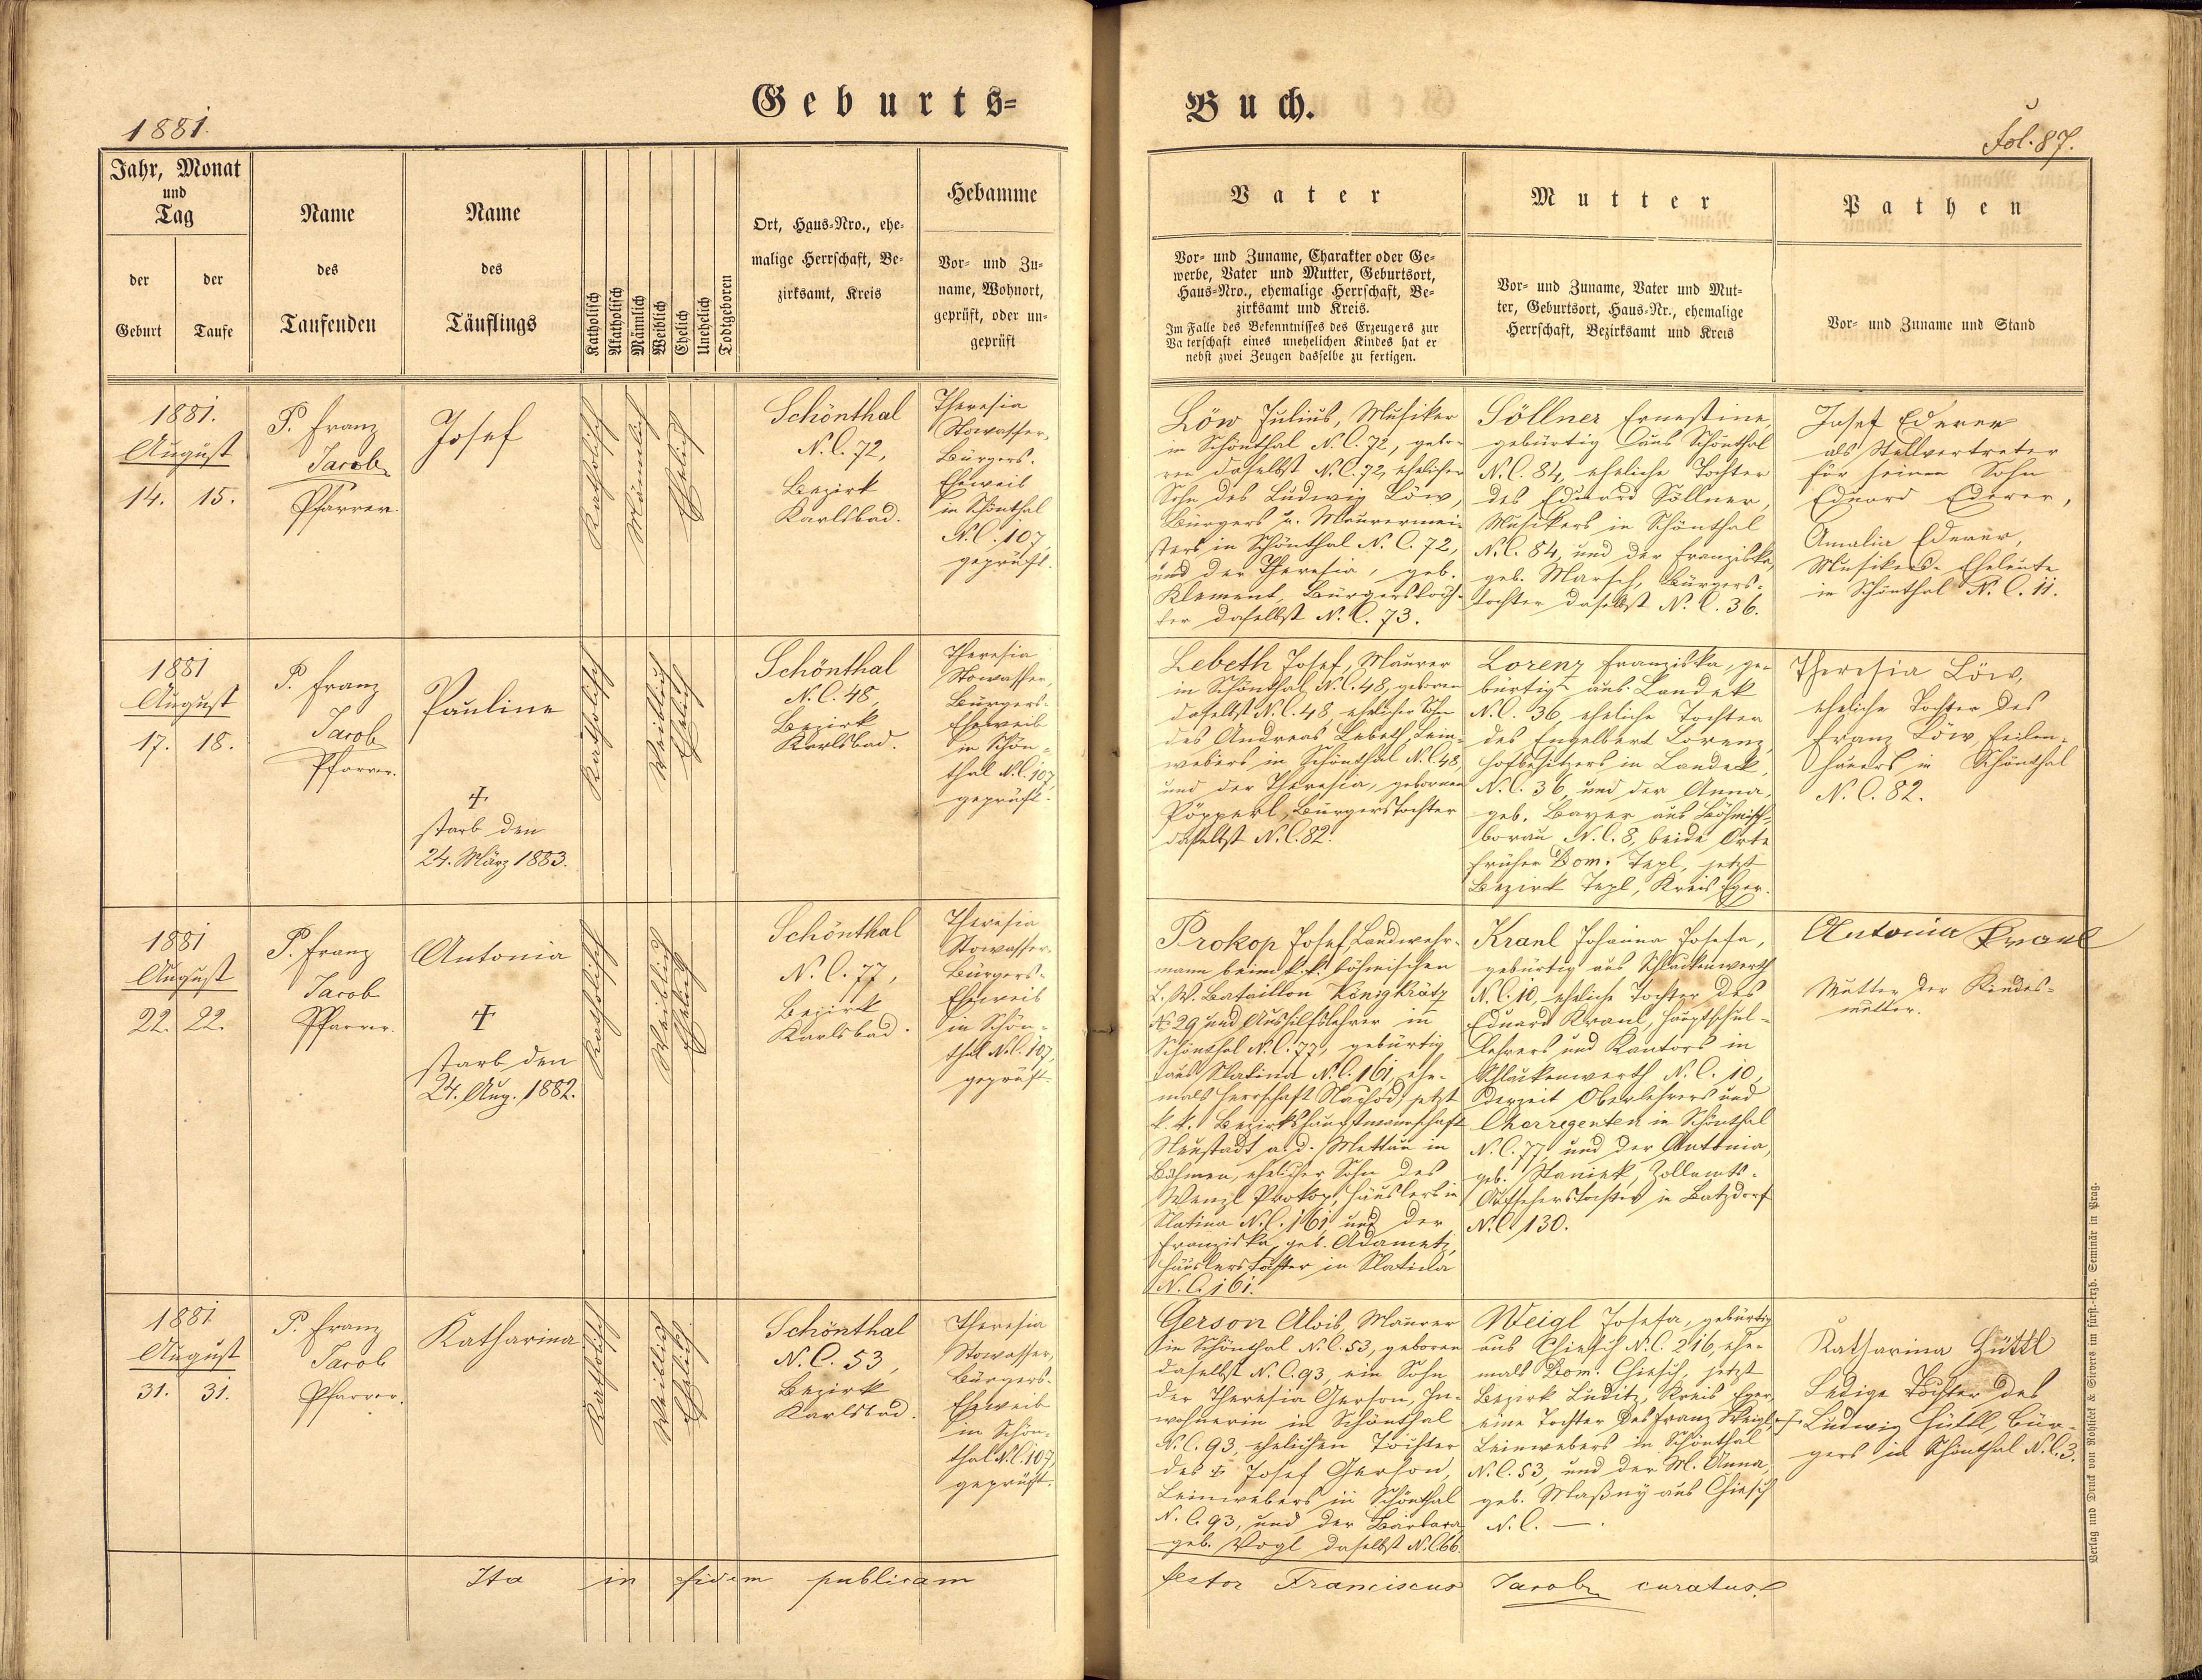 Geburts=
Buch.
1881.
Fol. 87.
Jahr, Monat
und
Tag
der
Geburt
der
Taufe
Name
des
Taufenden
Name
des
Täuflings
Katholisch
Akatholisch
Männlich
Weiblich
Ehelich
Unehelich
Todtgeboren
Ort, Haus=Nro., ehe=
malige Herrschaft, Be=
zirksamt, Kreis
Hebamme
Vor= und Zu=
name, Wohnort,
geprüft, oder un=
geprüft
Vater
Vor= und Zuname, Charakter oder Ge=
werbe, Vater und Mutter, Geburtsort,
Haus=Nro., ehemalige Herrschaft, Be=
zirksamt und Kreis.
Im Falle des Bekenntnisses des Erzeugers zur
Vaterschaft eines unehelichen Kindes hat er
nebst zwei Zeugen dasselbe zu fertigen.
Mutter
Vor= und Zuname, Vater und Mut=
ter, Geburtsort, Haus=Nr., ehemalige
Herrschaft, Bezirksamt und Kreis
Pathen
Vor= und Zuname und Stand
1881.
August
14. 15.
P. Franz
Jacob
Pfarrer.
Josef
Katholisch
Männlich
Ehelich
Schönthal
N.C. 72,
Bezirk
Karlsbad.
Theresia
Stowasser,
Bürgers-
Eheweib
in Schönthal
N.C. 107,
geprüft.
Löw Julius, Musiker
in Schönthal N.C. 72, gebo-
ren daselbst N.C. 72, ehelicher
Sohn des Ludwig Löw,
Bürgers u. Maurermei-
sters in Schönthal N.C. 72,
und der Theresia, geb.
Klement, Bürgerstoch-
ter daselbst N.C. 73.
Söllner Ernestine,
gebürtig aus Schönthal
N.C. 84, eheliche Tochter
des Eduard Söllner,
Musikers in Schönthal
N.C. 84, und der Franziska,
geb. Marsch, Bürgers-
tochter daselbst N.C. 36.
Josef Ederer
als Stellvertreter
für seinen Sohn
Eduard Ederer,
Amalia Ederer,
Musikers-Eheleute
in Schönthal N.C. 11.
1881
August
17. 18.
P. Franz
Jacob
Pfarrer.
Pauline
†
starb den
24. März 1883.
Katholisch
Weiblich
Ehelich
Schönthal
N.C. 48,
Bezirk
Karlsbad.
Theresia
Stowasser,
Bürgers-
Eheweib
in Schön-
thal N.C. 107,
geprüft.
Lebeth Josef, Maurer
in Schönthal N.C. 48, geboren
daselbst N.C. 48, ehelicher Sohn
des Andreas Lebeth, Lein-
webers in Schönthal N.C. 48,
und der Theresia, gebornen
Pöpperl, Bürgerstochter
daselbst N.C. 82.
Lorenz Franziska, ge-
bürtig aus Landek
N.C. 36, eheliche Tochter
des Engelbert Lorenz,
Hofbesitzers in Landek,
N.C. 36, und der Anna,
geb. Bayer aus Böhmisch-
borau N.C. 8, beide Orte
früher Dom. Tepl, jetzt
Bezirk Tepl, Kreis Eger.
Theresia Löw,
eheliche Tochter des
Franz Löw, Feilen-
hauers in Schönthal
N.C. 82.
1881
August
22. 22.
P. Franz
Jacob
Pfarrer.
Antonia
†
starb den
24. Aug. 1882.
Katholisch
Weiblich
Ehelich
Schönthal
N.C. 77,
Bezirk
Karlsbad.
Theresia
Stowasser,
Bürgers-
Eheweib
in Schön-
thal N.C. 107,
geprüft.
Prokop Josef, Landwehr-
mann beim k.k. böhmischen
L.W. Bataillon Königkrätz
No 29 und Aushilfslehrer in
Schönthal N.C. 77, gebürtig
aus Slatina N.C. 161, ehe-
mals Herrschaft Nachod, jetzt
k.k. Bezirkshauptmannschaft
Neustadt a.d. Mettau in
Böhmen, ehelicher Sohn des
Wenzl Prokop, Häuslers in
Slatina N.C. 161, und der
Franziska geb. Adametz,
Häuslerstochter in Slatina
N.C. 161.
Kranl Johanna Josefa,
gebürtig aus Schlackenwerth
N.C. 10, eheliche Tochter des
Eduard Kranl, Hauptschul-
lehrers und Kantors in
Schlackenwerth N.C. 10,
derzeit Oberlehrers und
Chorregenten in Schönthal
N.C. 77, und der Antonia,
geb. Staniek, Zollamts-
Aufseherstochter in Batzdorf
N.C. 130.
Antonia Kranl
Mutter der Kindes-
mutter.
1881
August
31. 31.
P. Franz
Jacob
Pfarrer.
Katharina
Katholisch
Weiblich
Ehelich
Schönthal
N.C. 53,
Bezirk
Karlsbad.
Theresia
Stowasser,
Bürgers-
Eheweib
in Schön-
thal N.C. 107,
geprüft.
Gerson Alois, Maurer
in Schönthal N.C. 53, geboren
daselbst N.C. 93, ein Sohn
der Theresia Gerson, In-
wohnerin in Schönthal
N.C. 93, ehelichen Tochter
des † Josef Gerson,
Leinwebers in Schönthal
N.C. 93, und der Barbara
geb. Vogl daselbst N.C. 66.
Weigl Josefa, gebürtig
aus Chiesch N.C. 216, ehe-
mals Dom. Chiesch, jetzt
Bezirk Luditz, Kreis Eger,
eine Tochter des Franz Weigl,
Leinwebers in Schönthal
N.C. 53, und der M. Anna,
geb. Maßny aus Chiesch
N.C. —.
Katharina Hüttl
Ledige Tochter des
† Ludwig Hüttl, Bür-
gers in Schönthal N.C. 3.
Ita in fidem publicam
testor Franciscus Jacob curatus.
Verlag und Druck von Rohliček & Sievers im fürst.-erzb. Seminär in Prag.